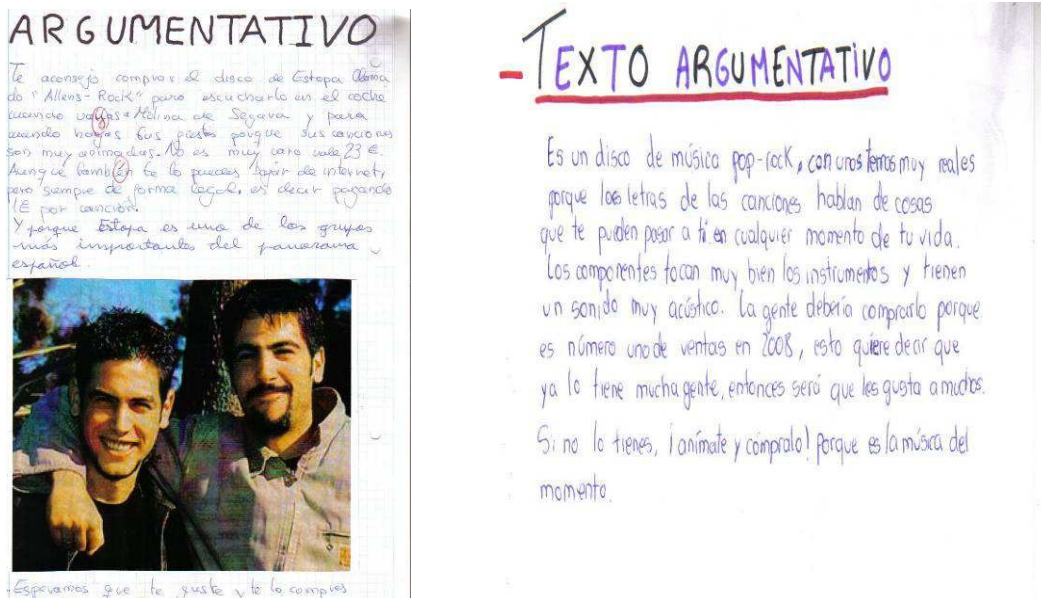 ARGUMENTATIVO
Te aconsejo comprar el disco de Estopa llama
do "Allens-Rock" para escucharlo en el coche
cuando vayas a Molina de Segura y para
cuando hagas tus fiestas porque sus canciones
son muy animadas. No es muy caro vale 23 €.
Aunque también te lo puedes bajar de internet,
pero siempre de forma legal, es decir pagando
1€ por canción.
Y porque Estopa es uno de los grupos
más importantes del panorama
español.
-Esperamos que te guste y te lo compres
-TEXTO ARGUMENTATIVO
Es un disco de música pop-rock, con unos temas muy reales
porque las letras de las canciones hablan de cosas
que te pueden pasar a ti en cualquier momento de tu vida.
Los componentes tocan muy bien los instrumentos y tienen
un sonido muy acústico. La gente debería comprarlo porque
es número uno de ventas en 2008, esto quiere decir que
ya lo tiene mucha gente, entonces será que les gusta a muchos.
Si no lo tienes, ¡anímate y cómpralo! Porque es la música del
momento.